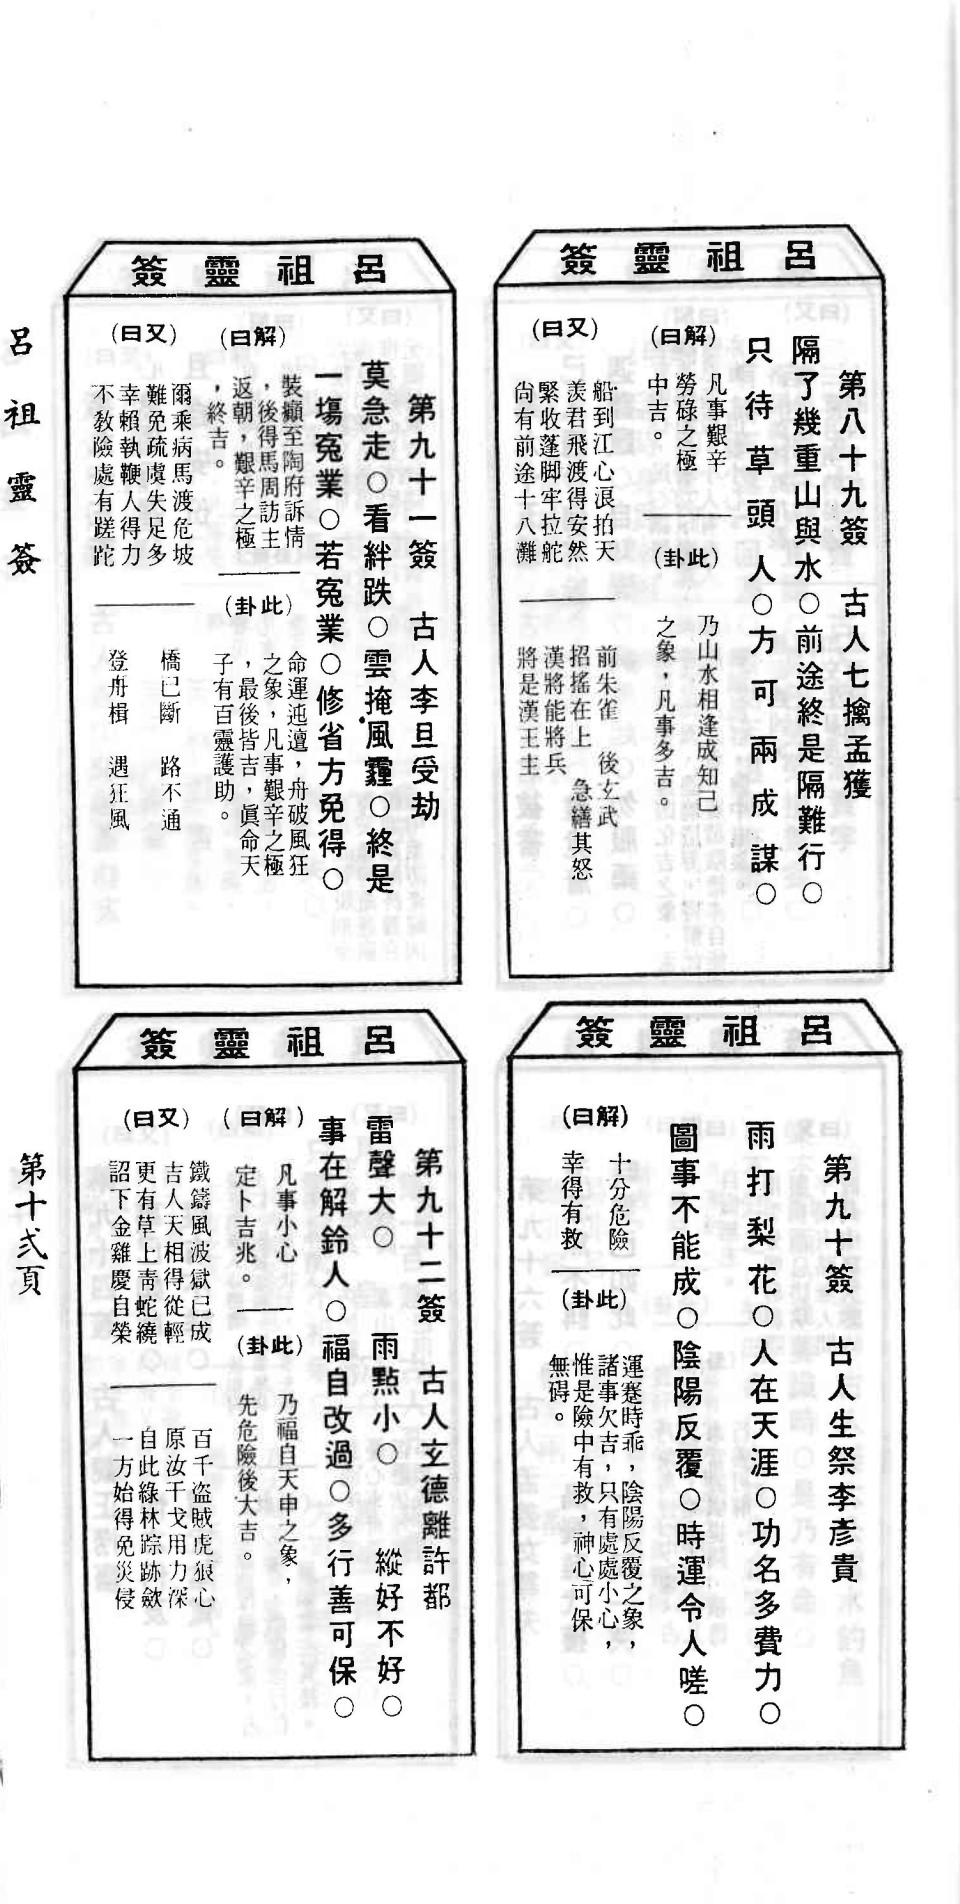 呂祖靈簽
第八十九簽　古人七擒孟獲
隔了幾重山與水○前途終是隔難行○
只待草頭人○方可兩成謀○
(解曰)
凡事艱辛
勞碌之極
中吉。
(此卦)
乃山水相逢成知己
之象，凡事多吉。
(又曰)
船到江心浪拍天
羨君飛渡得安然
緊收蓬脚牢拉舵
尙有前途十八灘
前朱雀　後玄武
招搖在上　急繕其怒
漢將能將兵
將是漢王主
呂祖靈簽
第九十簽　古人生祭李彥貴
雨打梨花○人在天涯○功名多費力○
圖事不能成○陰陽反覆○時運令人嗟○
(解曰)
十分危險
幸得有救
(此卦)
運蹇時乖，陰陽反覆之象，
諸事欠吉，只有處處小心，
惟是險中有救，神心可保
無碍。
呂祖靈簽
第九十一簽　古人李旦受劫
莫急走○看絆跌○雲掩風霾○終是
一塲寃業○若寃業○修省方免得○
(解曰)
裝癲至陶府訴情
，後得馬周訪主
返朝，艱辛之極
，終吉。
(此卦)
命運迍邅，舟破風狂
之象，凡事艱辛之極
，最後皆吉，眞命天
子有百靈護助。
(又曰)
爾乘病馬渡危坡
難免疏虞失足多
幸賴執鞭人得力
不敎險處有蹉跎
橋已斷　路不通
登舟楫　遇狂風
呂祖靈簽
第九十二簽　古人玄德離許都
雷聲大○　雨點小○　縱好不好○
事在解鈴人○福自改過○多行善可保○
(解曰)
凡事小心
定卜吉兆。
(此卦)
乃福自天申之象，
先危險後大吉。
(又曰)
鐵鑄風波獄已成
吉人天相得從輕
更有草上靑蛇繞
詔下金雞慶自榮
百千盜賊虎狼心
原汝干戈用力深
自此綠林踪跡歛
一方始得免災侵
呂祖靈簽
第十弍頁